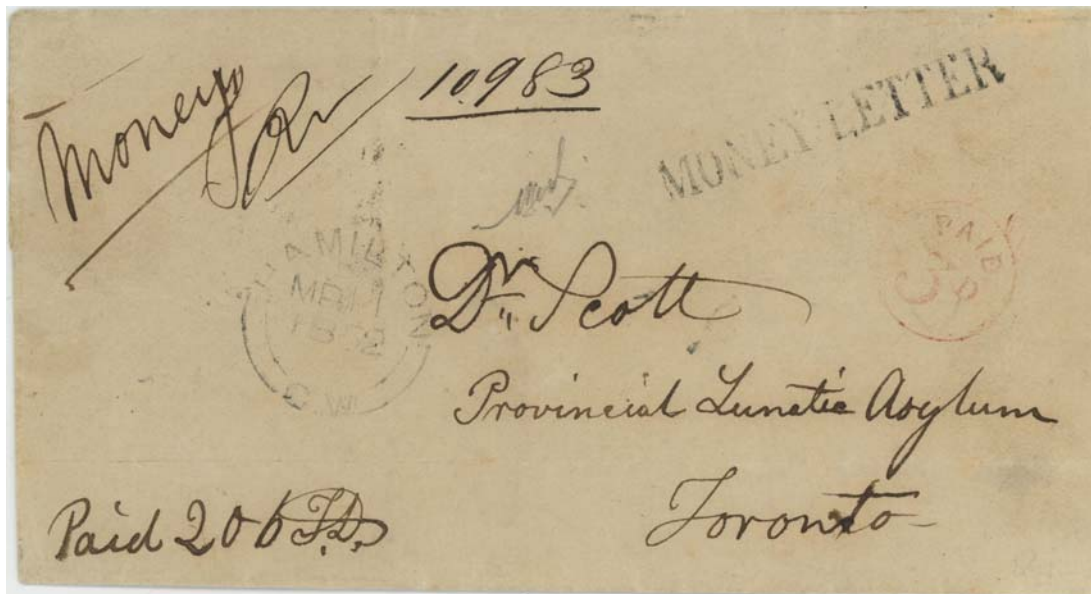 Money
10983
MONEY-LETTER
HAMILTON
C.W.
PAID
3
Dr. Scott
Provincial Lunatic Asylum
Toronto
Paid 206